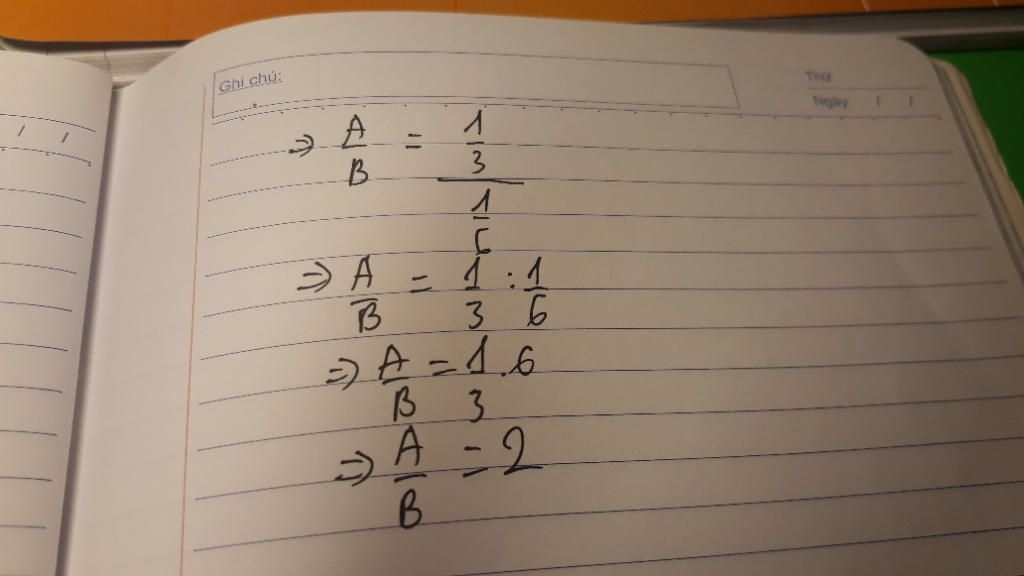 Ghi chú:
Thứ
Ngày / /
/ /
=> A/B = (1/3)/(1/6)
=> A/B = 1/3 : 1/6
=> A/B = 1/3 . 6
=> A/B = 2